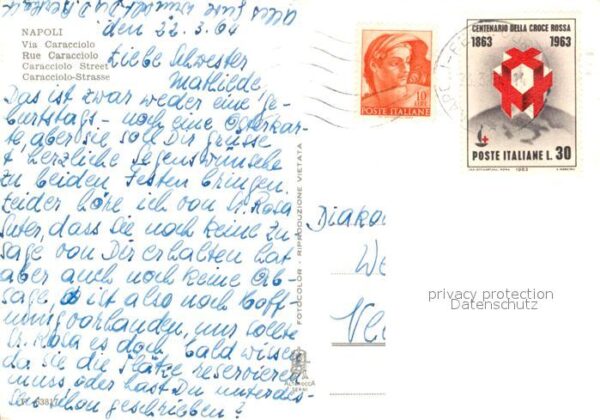 NAPOLI
Via Caracciolo
Rue Caracciolo
Caracciolo Street
Caracciolo-Strasse
alles Gute
den 22.3.64
Liebe Schwester
Mathilde,
Das ist zwar weder eine Ge-
burtstags- noch eine Osterkar-
te, aber sie soll Dir Grüsse
+ herzliche Segenswünsche
zu beiden Festen bringen.
Leider höre ich von Sr. Rosa
Suter, dass sie noch keine Zu-
sage von Dir erhalten hat
aber auch noch keine Ab-
sage, es ist also noch Hoff-
nung vorhanden, nur sollte
Sr. Rosa es doch bald wissen
da sie die Plätze reservieren
muss, oder hast Du unterdes-
sen schon geschrieben?
FOTOCOLOR - RIPRODUZIONE VIETATA
10
LIRE
POSTE ITALIANE
CENTENARIO DELLA CROCE ROSSA
1863 1963
POSTE ITALIANE L. 30
1963
Diako
We
privacy protection
Datenschutz